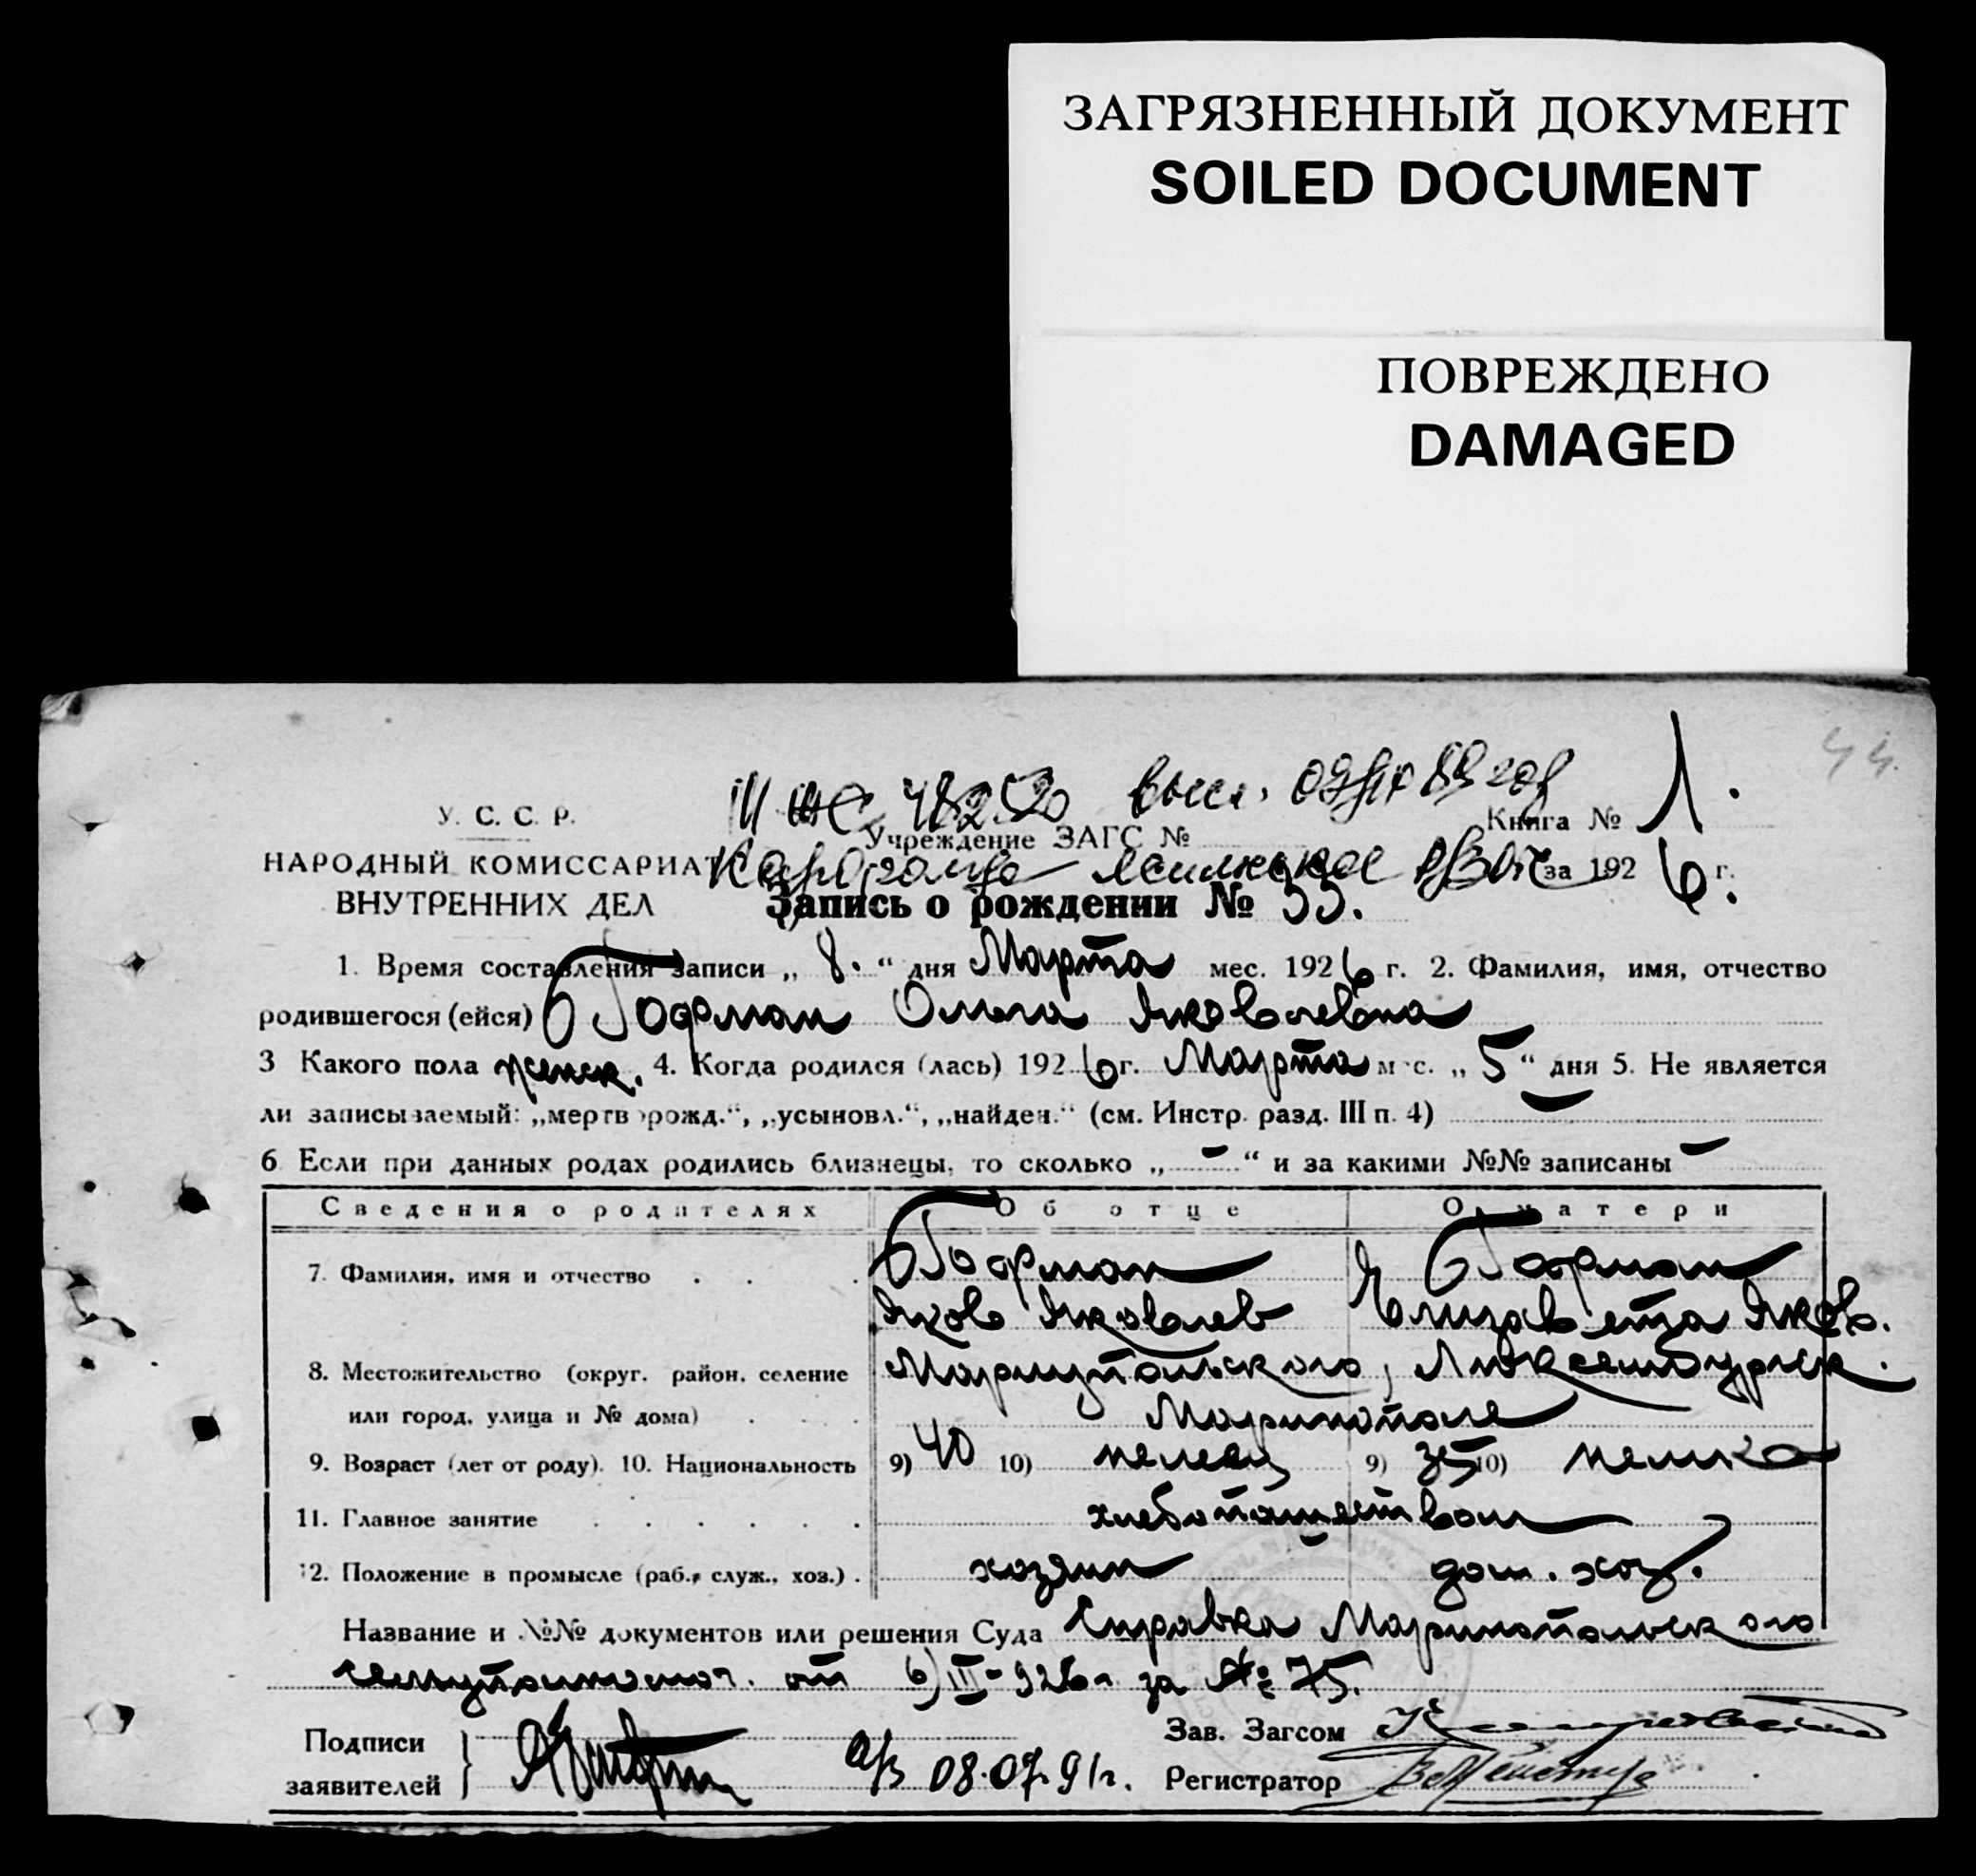 ЗАГРЯЗНЕННЫЙ ДОКУМЕНТ
SOILED DOCUMENT
ПОВРЕЖДЕНО
DAMAGED
44.
III ЖС 48252 высл.
У. С. С. Р.
Учреждение ЗАГС №
Книга № 1.
НАРОДНЫЙ КОМИССАРИАТ
Караганда
за 1926 г.
ВНУТРЕННИХ ДЕЛ
Запись о рождении № 55.
1. Время составления записи „ 8. “ дня Марта мес. 1926 г. 2. Фамилия, имя, отчество
родившегося (ейся) Гофман Ольга Яковлевна
3 Какого пола женск. 4. Когда родился (лась) 1926 г. Марта мес. „ 5 “ дня 5. Не является
ли записываемый: „мертворожд.“, „усыновл.“, „найден.“ (см. Инстр. разд. III п. 4) —
6 Если при данных родах родились близнецы, то сколько „ - “ и за какими №№ записаны —
Сведения о родителях Об отце О матери
7. Фамилия, имя и отчество Гофман Гофман
Яков Яковлев Елизавета Яков.
8. Местожительство (округ, район, селение Мариупольского, Люксембургск.
или город, улица и № дома) Мариополе
9. Возраст (лет от роду). 10. Национальность 9) 40 10) немец 9) 35 10) немка
11. Главное занятие хлебопашеством
12. Положение в промысле (раб., служ., хоз.) хозяин дом. хоз.
Название и №№ документов или решения Суда Справка Мариопольского
от 6/III-926 г за № 75.
Подписи
заявителей
а/з 08.07.91г.
Зав. Загсом
Регистратор